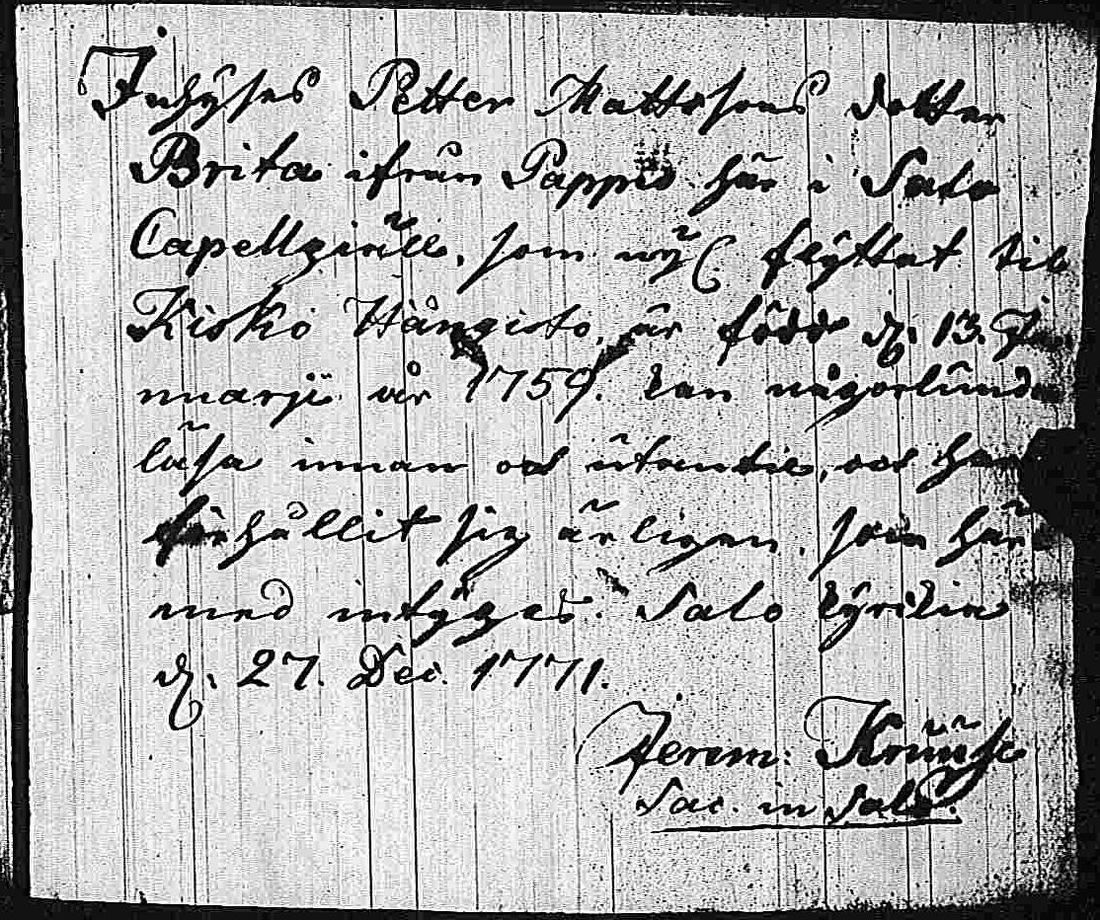 Inhyses Petter Mattssons dotter
Brita ifrån Pappis här i Salo
Capellgiäll, som nyl. flyttat til
Kisko Hångisto, är född d. 13. Ja
nuarji år 1759. kan någorlunda
läsa innan och utantil, och har
förhållit sig ärligen, som här
med intygas. Salo kyrikia
d. 27. Dec. 1771.
Jerem: Kruusi
Sac. in Salo.